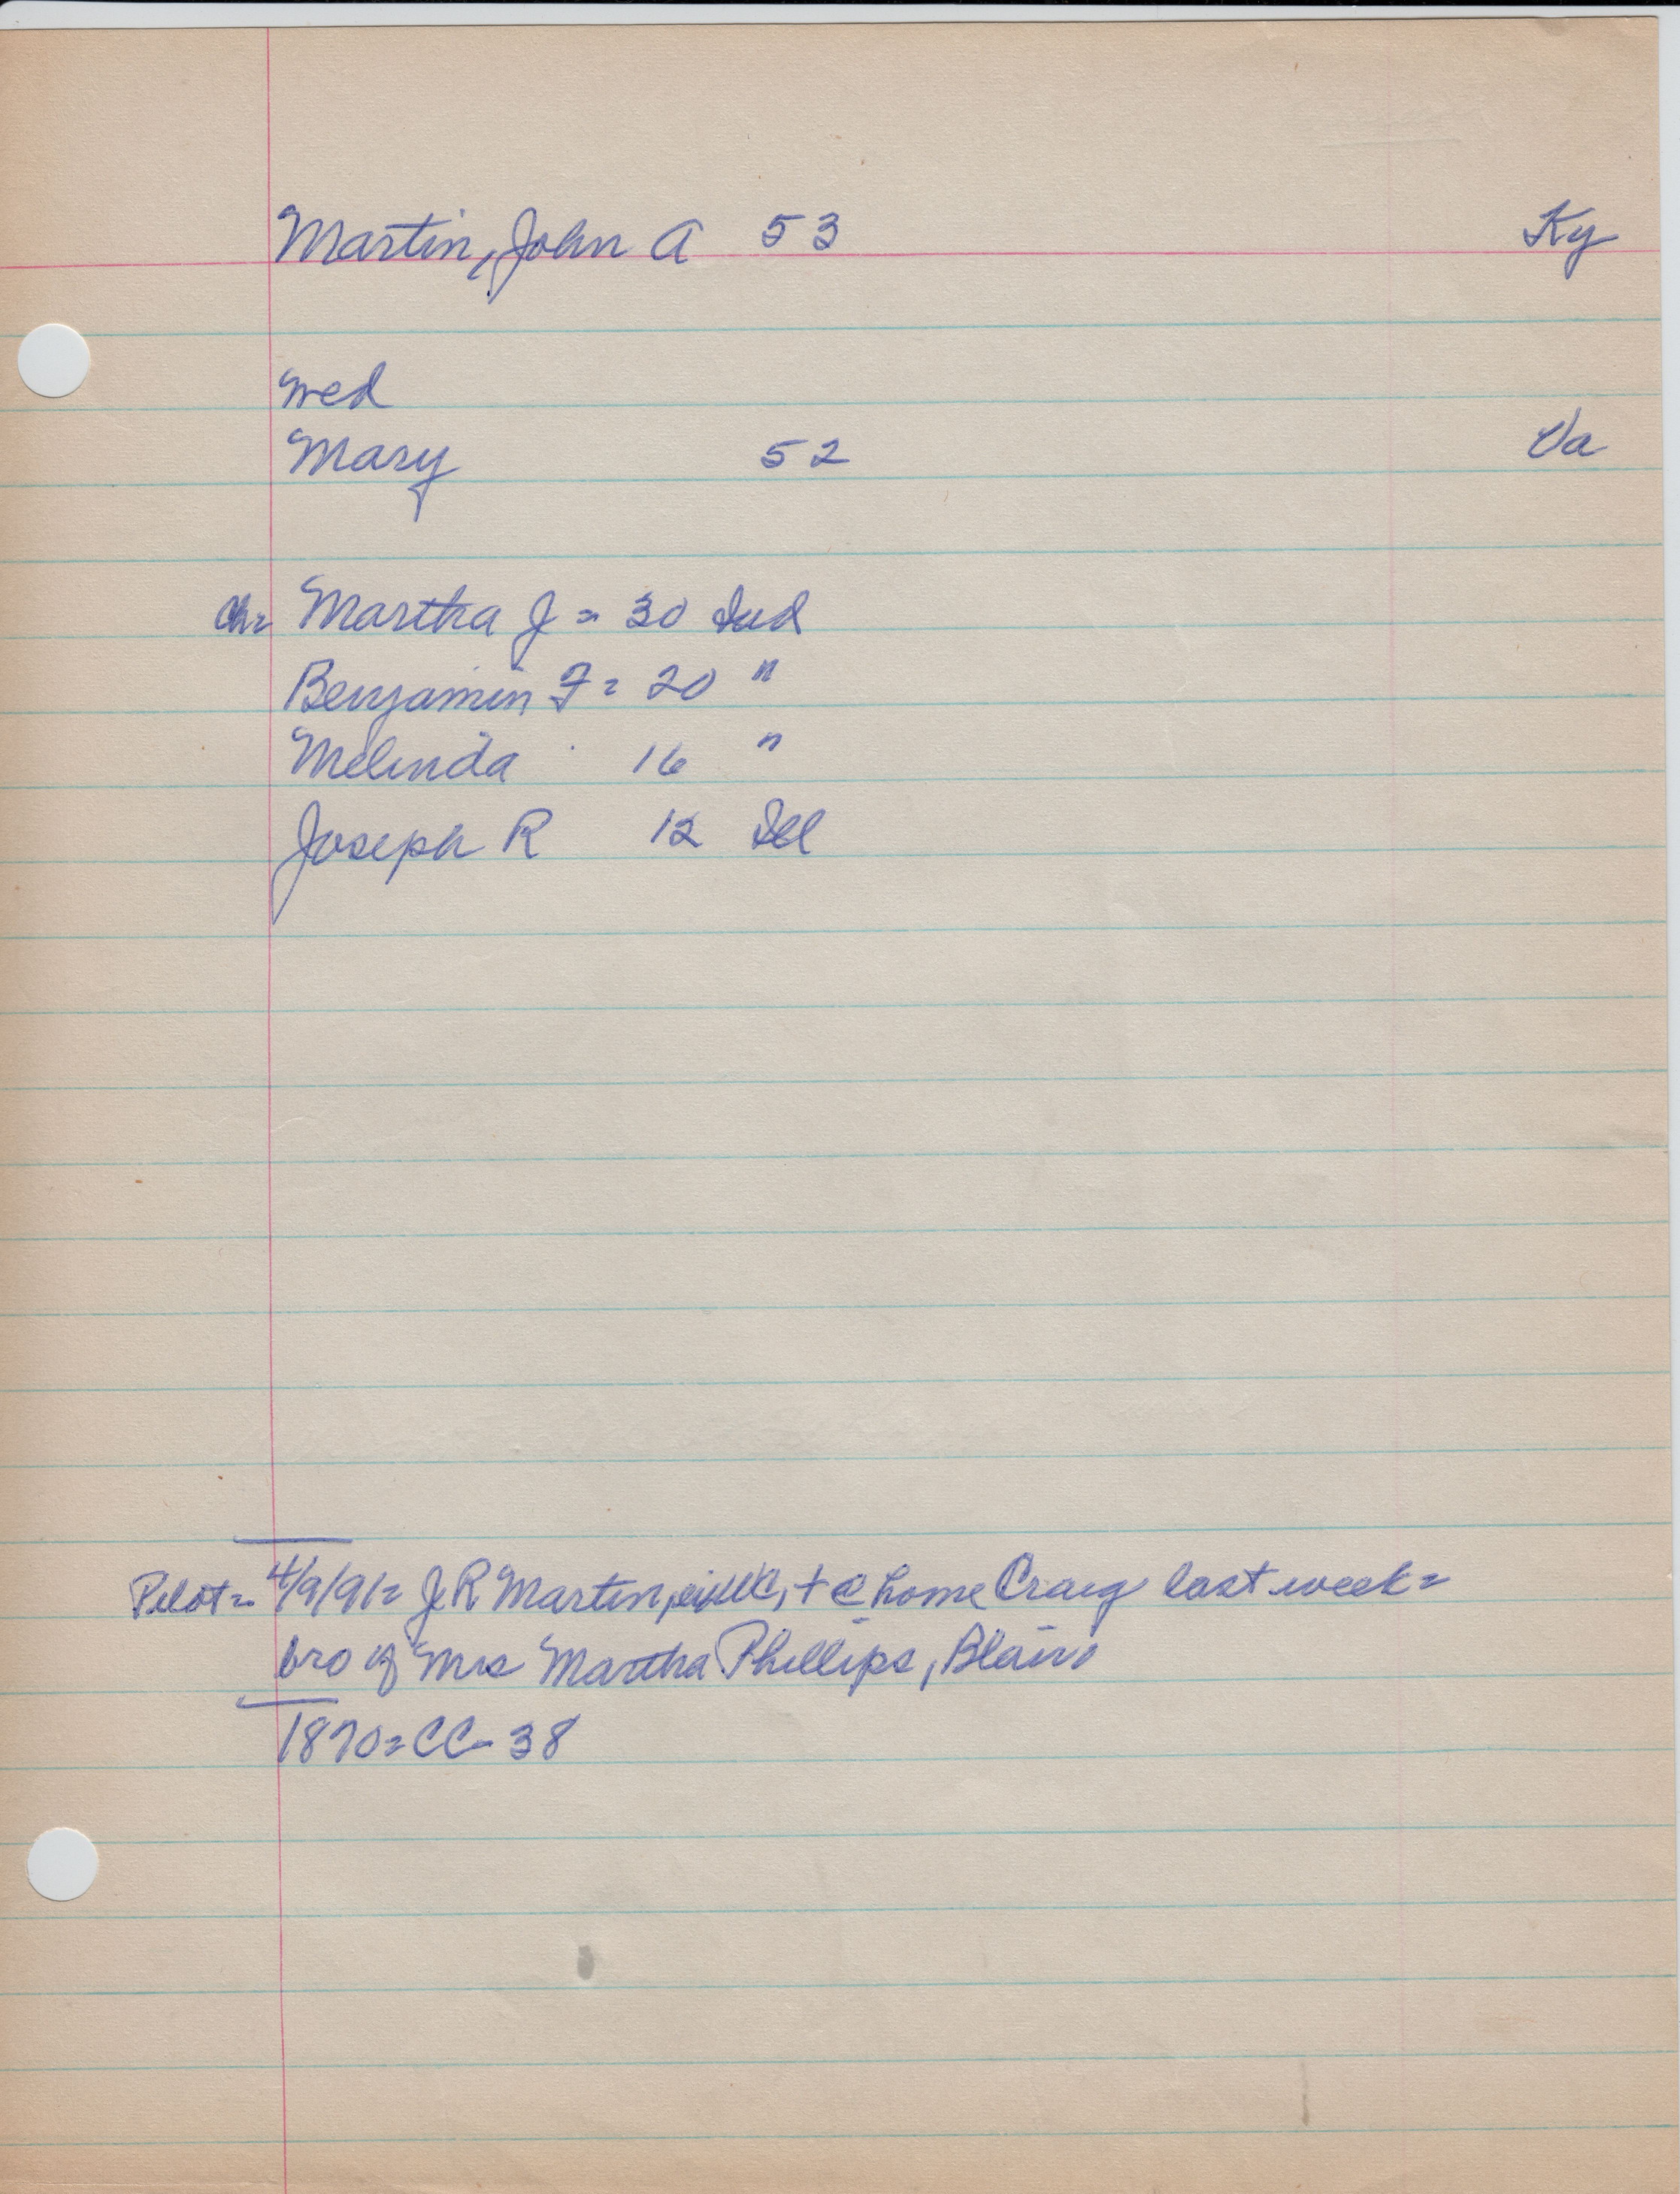 Martin, John A 53 Ky
Wed
Mary 52 Va
Ch= Martha J = 30 Ind
Benjamin F = 20 "
Melinda 16 "
Joseph R 12 Ill
Pilot= 4/9/91= J R Martin, + @ home Craig last week=
bro of Mrs Martha Phillips, Blair
1870=CC-38